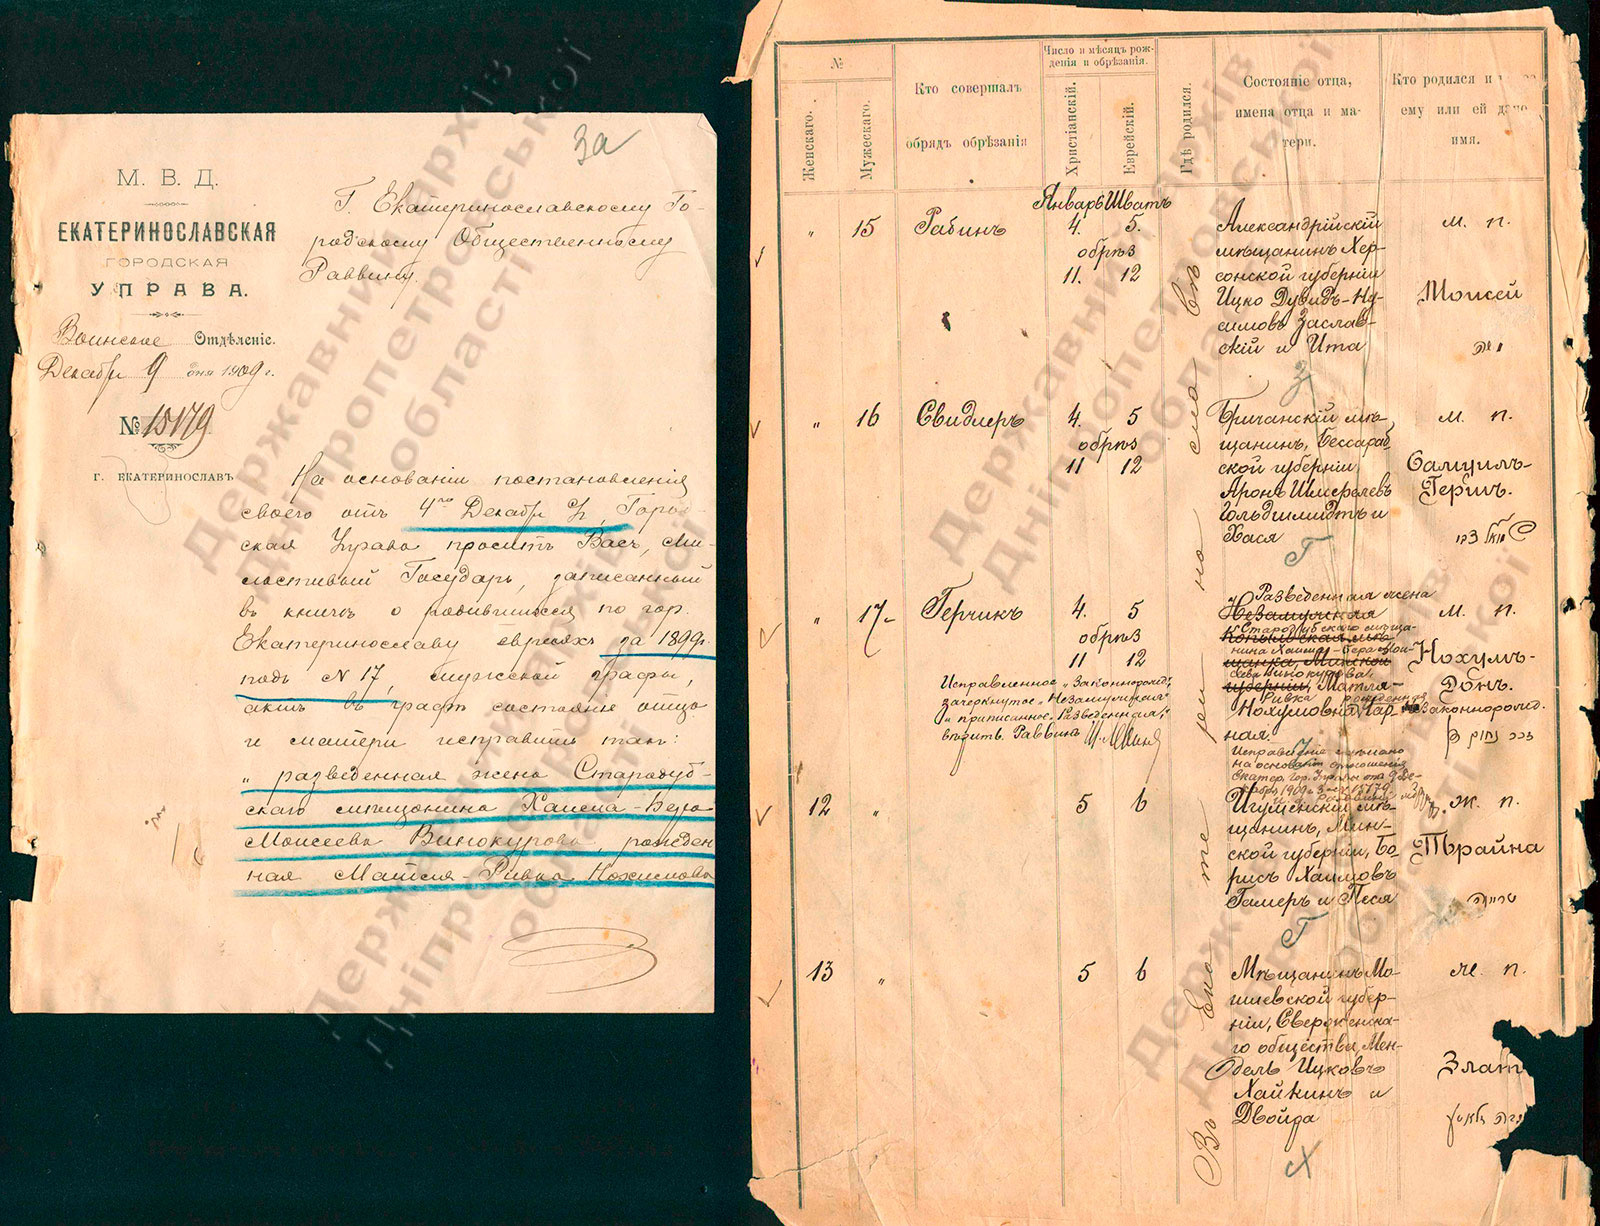 За
М. В. Д.
ЕКАТЕРИНОСЛАВСКАЯ
ГОРОДСКАЯ
УПРАВА.
Воинское Отдѣленіе.
Декабр 9 дня 1909 г.
№ 15179
г. ЕКАТЕРИНОСЛАВЪ
Г. Екатеринославскому Го-
родскому Общественному
Раввину.
На основаніи постановленія
своего отъ 4го Декабр, Город-
ская Управа проситъ Васъ, Ми-
лостивый Государь, записанный
въ книгѣ о родившихся по гор.
Екатеринославу евреяхъ за 1899 г.
подъ № 17, мужской графы,
актъ въ графѣ состоянія отца
и матери исправить такъ:
„разведенная жена Стародуб-
скаго мѣщанина Хаима-Бера
Моисеева Винокурова, рожден
ная Матля-Ривка Нохимова
№
Женскаго.
Мужескаго.
Кто совершалъ
обрядъ обрѣзанія
Число и мѣсяцъ рож-
денія и обрѣзанія.
Христіанскій.
Еврейскій.
Гдѣ родился.
Состояніе отца,
имена отца и ма-
тери.
Кто родился и
ему или ей дано
имя.
Январь Шватъ
„ 15 Рабинъ 4. 5.
обрѣз
11. 12
Александрійскій
мѣщанинъ Хер-
сонской губерніи
Ицко Дувидъ-Ну-
симовъ Заслав-
скій и Ита
м. п.
Моисей
משה
„ 16 Свидлеръ 4. 5
обрѣз
11 12
Бричанскій мѣ-
щанинъ, Бессараб
ской губерніи
Аронъ Шмерелевъ
Гольдшмидтъ и
Хася
м. п.
Самуилъ-
Гершъ.
Г
„ 17 Герчикъ 4. 5
обрѣз
11 12
Исправленное „Законнорожд.,
зачеркнутое „Незамужняя“
и приписанное „Разведенная“
вѣрить. Раввинъ
Разведенная жена
Незамужняя
Стародубскаго мѣща-
Копыльская мѣ-
нина Хаима-Бера Мои-
щанка, Минской
сеева Винокурова
губерніи, Матля-
Ривка рожденная
Нохумовна Чар-
ная.
Исправленіе сдѣлано
на основаніи отношенія
Екатер. Гор. Управы отъ 9 Де-
кабря 1909 г. за № 15179
м. п.
Нохумъ-
Донъ.
Законнорожд.
12 „ 5 6
Игуменскій мѣ-
щанинъ, Мин-
ской губерніи, Бо-
рисъ Хаимовъ
Гамеръ и Песя
ж. п.
Трайна
טריינה
Г
13 „ 5 6
Мѣщанинъ Мо-
гилевской губер-
ніи, Сверженска-
го общества, Мен-
дель Ицковъ
Хайкинъ и
Двойра
ж. п.
Злат
Х
Въ Екатеринославѣ
Державний архів
Дніпропетровської
області
Державний архів
Дніпропетровської
області
Державний архів
Дніпропетровської
області
Державний архів
Дніпропетровської
області